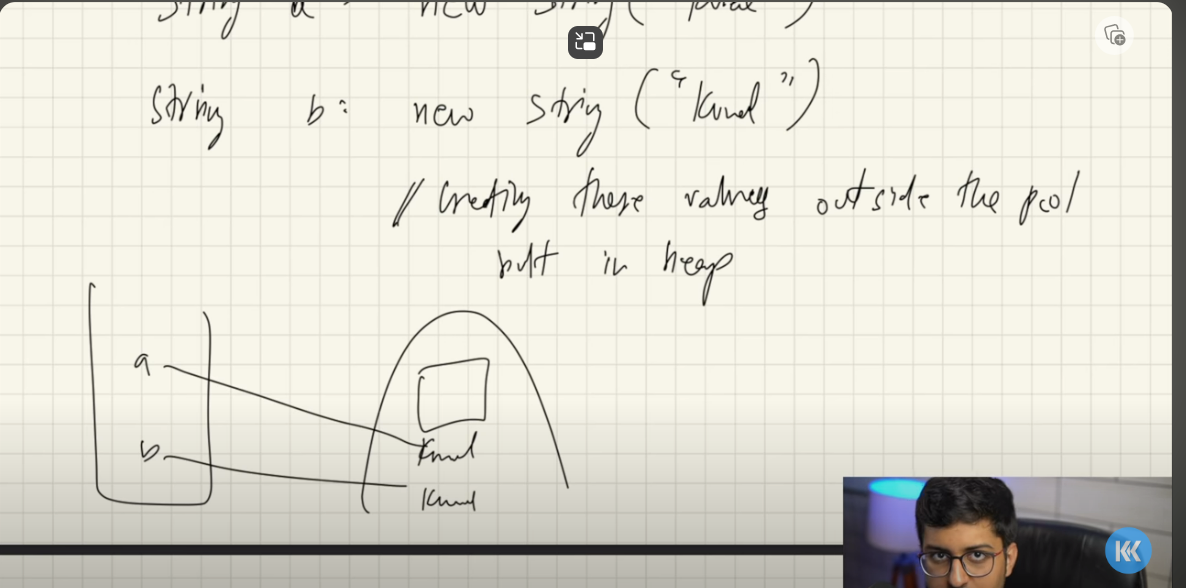 String a = new String(
String b = new String ("Kunal")
// Creating these values outside the pool
but in heap
a
b
Kunal
Kunal